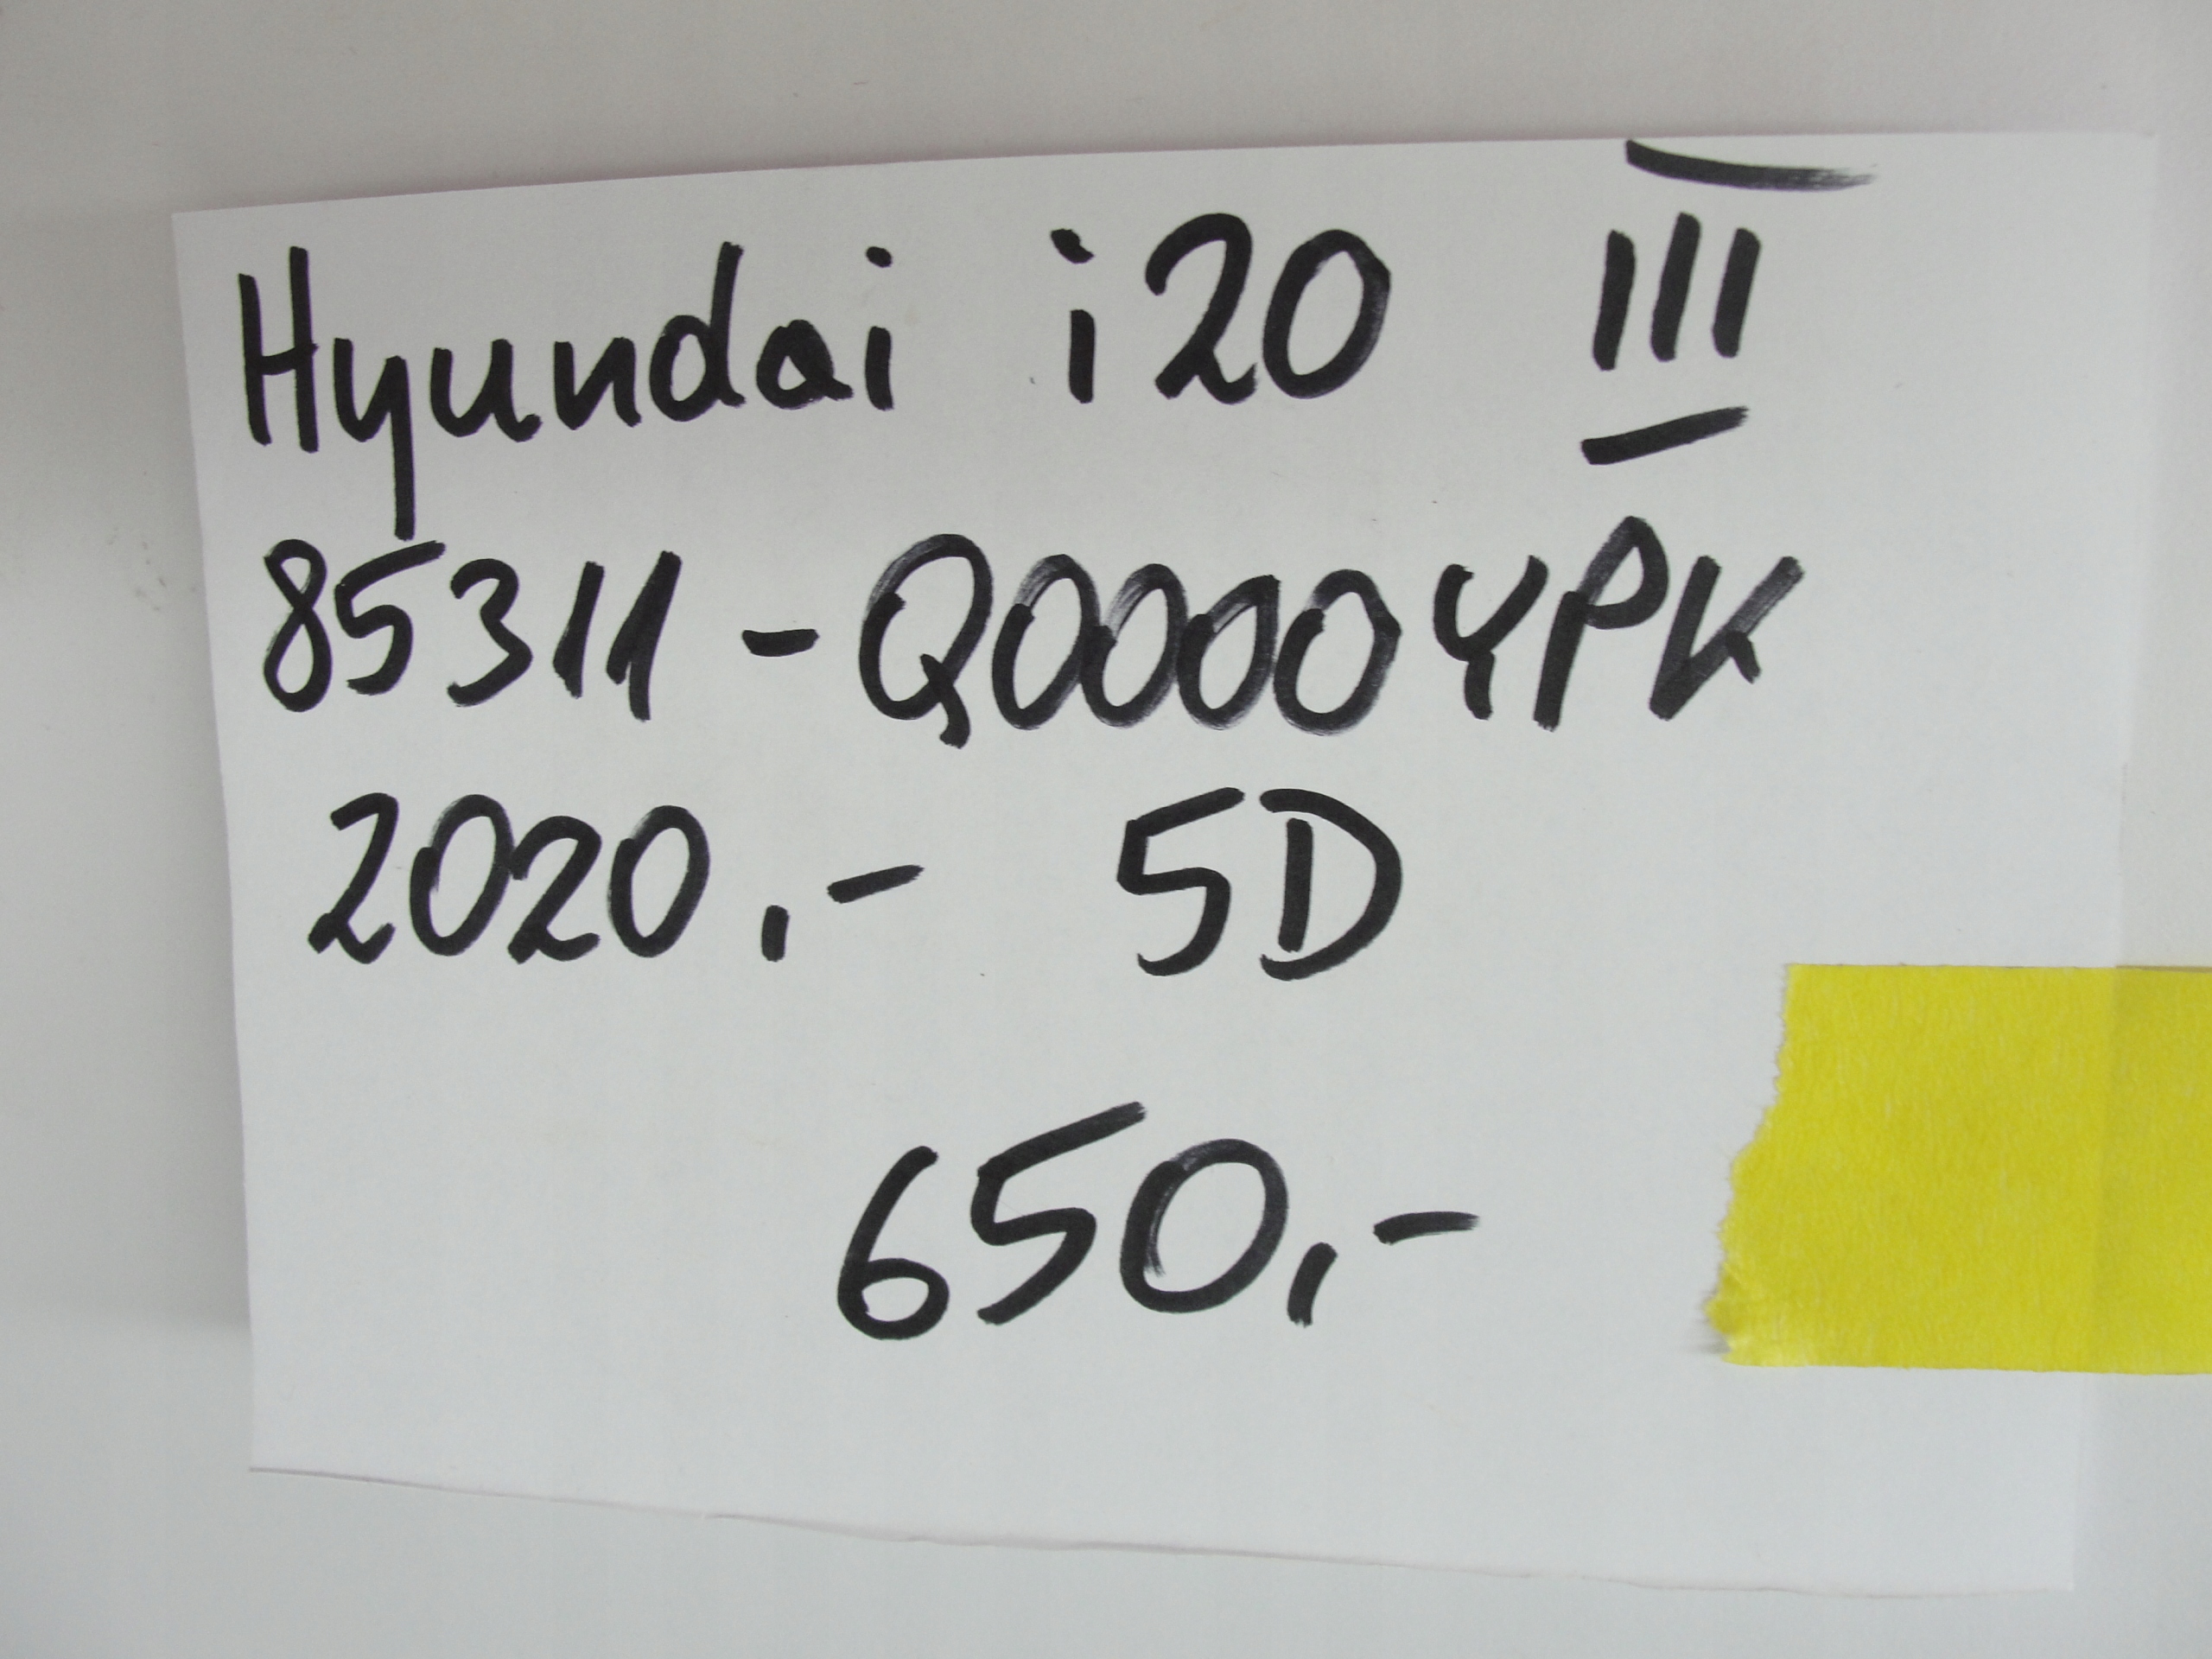 Hyundai i20 III
85311-Q0000YPK
2020.- 5D
650,-